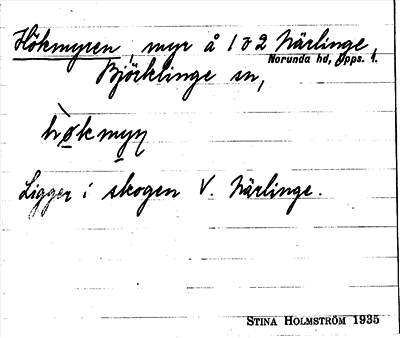 Hökmyren, myr å 1 o 2 Närlinge,
Norunda hd, Upps. l.
Björklinge sn,
Ligger i skogen V. Närlinge.
STINA HOLMSTRÖM 1935